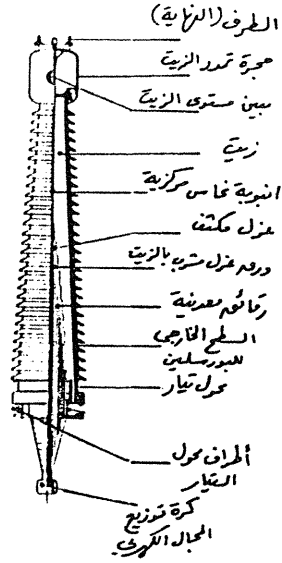 الطرف (النهاية)
حجرة تمدد الزيت
مبين مستوى الزيت
زيت
انبوبة نحاس مركزية
عزل مكثف
ورق عزل مشرب بالزيت
رقائق معدنية
السطح الخارجي
للبورسلين
محول تيار
أطراف محول
التيار
كرة توزيع
المجال الكهربي